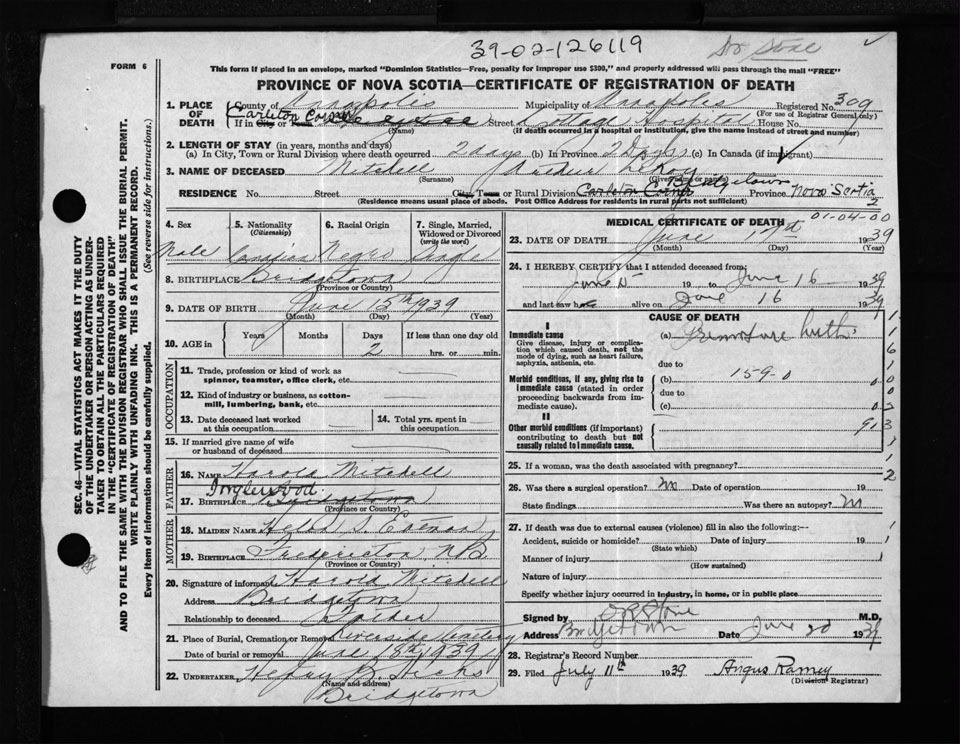 39-02-126119
Dr Stone
FORM 6
This form if placed in an envelope, marked "Dominion Statistics—Free, penalty for improper use $300," and properly addressed will pass through the mail "FREE"
PROVINCE OF NOVA SCOTIA—CERTIFICATE OF REGISTRATION OF DEATH
1. PLACE OF DEATH County of Annapolis Municipality of Annapolis Registered No. 309
(For use of Registrar General only)
Carleton Corner
If in City or Town Street Cottage Hospital House No.
(Name) (If death occurred in a hospital or institution, give the name instead of street and number)
2. LENGTH OF STAY (in years, months and days)
(a) In City, Town or Rural Division where death occurred 2 days (b) In Province 2 Days (c) In Canada (if immigrant)
3. NAME OF DECEASED Mitchell Arthur
(Surname) (Given name or names)
RESIDENCE No. Street City, Town or Rural Division Carleton Corner Bridgetown Province Nova Scotia
(Residence means usual place of abode. Post Office Address for residents in rural parts not sufficient)
2
01-04-00
4. Sex 5. Nationality (Citizenship) 6. Racial Origin 7. Single, Married, Widowed or Divorced (write the word)
Male Canadian Negro Single
8. BIRTHPLACE Bridgetown
(Province or Country)
9. DATE OF BIRTH June 15th 1939
(Month) (Day) (Year)
10. AGE in Years Months Days If less than one day old
2 hrs. or min.
OCCUPATION
11. Trade, profession or kind of work as spinner, teamster, office clerk, etc.
12. Kind of industry or business, as cotton-mill, lumbering, bank, etc.
13. Date deceased last worked at this occupation
14. Total yrs. spent in this occupation
15. If married give name of wife or husband of deceased
FATHER
16. NAME Harold Mitchell
Inglewood
17. BIRTHPLACE Bridgetown
(Province or Country)
MOTHER
18. MAIDEN NAME Helen S.
19. BIRTHPLACE Fredericton N.B.
(Province or Country)
20. Signature of informant Harold Mitchell
Address Bridgetown
Relationship to deceased Father
21. Place of Burial, Cremation or Removal Riverside Cemetery
Date of burial or removal June 18th 1939
22. UNDERTAKER B. Hicks
(Name and address)
Bridgetown
MEDICAL CERTIFICATE OF DEATH
23. DATE OF DEATH June 17th 1939
(Month) (Day) (Year)
24. I HEREBY CERTIFY that I attended deceased from
June 15 19 to June 16 1939
and last saw h alive on June 16 1939
CAUSE OF DEATH
I
Immediate cause (a) Premature birth
Give disease, injury or complication which caused death, not the mode of dying, such as heart failure, asphyxia, asthenia, etc.
due to
Morbid conditions, if any, giving rise to immediate cause (stated in order proceeding backwards from immediate cause).
(b) 159-0
due to
(c)
II
Other morbid conditions (important) contributing to death but not causally related to immediate cause.
913
25. If a woman, was the death associated with pregnancy?
26. Was there a surgical operation? No Date of operation 19
State findings Was there an autopsy? No
27. If death was due to external causes (violence) fill in also the following:—
Accident, suicide or homicide? Date of injury 19
(State which)
Manner of injury
(How sustained)
Nature of injury
Specify whether injury occurred in industry, in home, or in public place
Signed by Stone M.D.
Address Bridgetown Date June 20 1939
28. Registrar's Record Number
29. Filed July 11th 1939 Angus Ramey
(Division Registrar)
SEC. 46—VITAL STATISTICS ACT MAKES IT THE DUTY
OF THE UNDERTAKER OR PERSON ACTING AS UNDER-
TAKER TO OBTAIN ALL THE PARTICULARS REQUIRED
IN THE "CERTIFICATE OF REGISTRATION OF DEATH"
AND TO FILE THE SAME WITH THE DIVISION REGISTRAR WHO SHALL ISSUE THE BURIAL PERMIT.
WRITE PLAINLY WITH UNFADING INK. THIS IS A PERMANENT RECORD.
Every item of information should be carefully supplied. (See reverse side for instructions.)